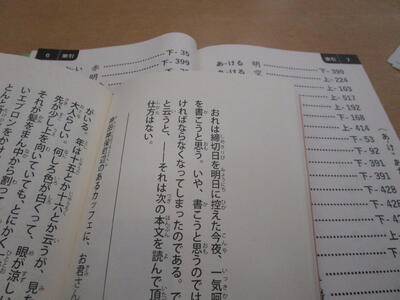 6 索引
下-35
赤
下-399
明
索引 7
あ-ける 明 下-390
あ-ける 空 上-224
上-103
上-517
上-192
下-168
上-414
下-53
下-92
下-391
下-391
下-428
おれは締切日を明日に控えた今夜、一気呵
を書こうと思う。いや、書こうと思うのでは
ければならなくなってしまったのである。で
と云うと、――それは次の本文を読んで頂
仕方はない。
神田神保町辺のあるカッフェに、お君さん
がいる。年は十五とか十六とか云うが、見た
大人しい。何しろ色が白くって、眼が涼しい
先が少し上を向いていても、とにかく
それが髪をまん中から割っ
いエプロンをかけ
とんと